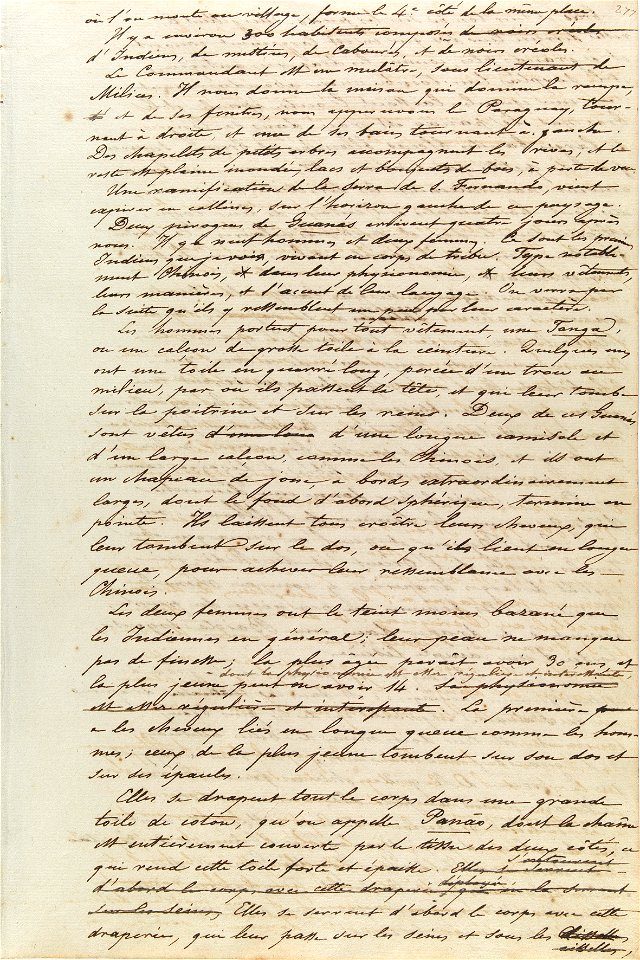 où l'on monte au village, forme le 4e côté de la même place.
Il y a environ 300 habitants composés de noirs
d'Indiens, de métives, de Cabourés, et de noirs créoles.
Le Commandant est un mulâtre, sous lieutenant de
Milices. Il nous donne la maison qui domine la rampe,
et de ses fenêtres, nous appercevons le Paraguay, tour-
nant à droite, et une de ses baies tournant à gauche.
Des chapelets de petits arbres accompagnent les rives, et le
reste est plaine inondée, lacs et bouquets de bois, à perte de vue
Une ramification de la Serra de S. Fernando, vient
expirer en collines, sur l'horizon gauche de ce paysage.
Deux pirogues de Guanás arrivent quatre jours après
nous. Il y a neuf hommes et deux femmes. Ce sont les premiers
Indiens que je vois, vivant en corps de tribu. Type notable-
ment Chinois, dans leur physionomie, leurs vêtements,
leurs manières, et l'accent de leur langage. On verra par
la suite qu'ils y ressemblent un peu par leur caractère.
Les hommes portent pour tout vêtement, une Tanga,
ou un caleçon de grosse toile à la ceinture. Quelques uns
ont une toile en quarré long, percée d'un trou au
milieu, par où ils passent la tête, et qui leur tombe
sur la poitrine et sur les reins. Deux de ces Guanás
sont vêtus d'une longue camisole et
d'un large caleçon, comme les Chinois, et ils ont
un chapeau de jonc, à bords extraordinairement
larges, dont le fond d'abord sphérique, termine en
pointe. Ils laissent tous croître leurs cheveux, qui
leur tombent sur le dos, ou qu'ils lient en longue
queue, pour achever leur ressemblance avec les
Chinois.
Les deux femmes ont le teint moins bazané que
les Indiennes en général; leur peau ne manque
pas de finesse; la plus âgée paraît avoir 30 ans, et
dont la physionomie est assez régulière et intéressante
la plus jeune peut en avoir 14. Sa physionomie
est assez régulière et intéressante. La première
a les cheveux liés en longue queue comme les hom-
mes; ceux de la plus jeune tombent sur son dos et
sur ses épaules.
Elles se drapent tout le corps dans une grande
toile de coton, qu'on appelle Panão, dont la chaîne
est entièrement couverte par le tissu des deux côtés, ce
qui rend cette toile forte et épaisse. Elles se serrent
d'abord le corps avec cette draperie
sur les seins, Elles se serrent d'abord le corps avec cette
draperie, qui leur passe sur les seins et sous les
aisselles,